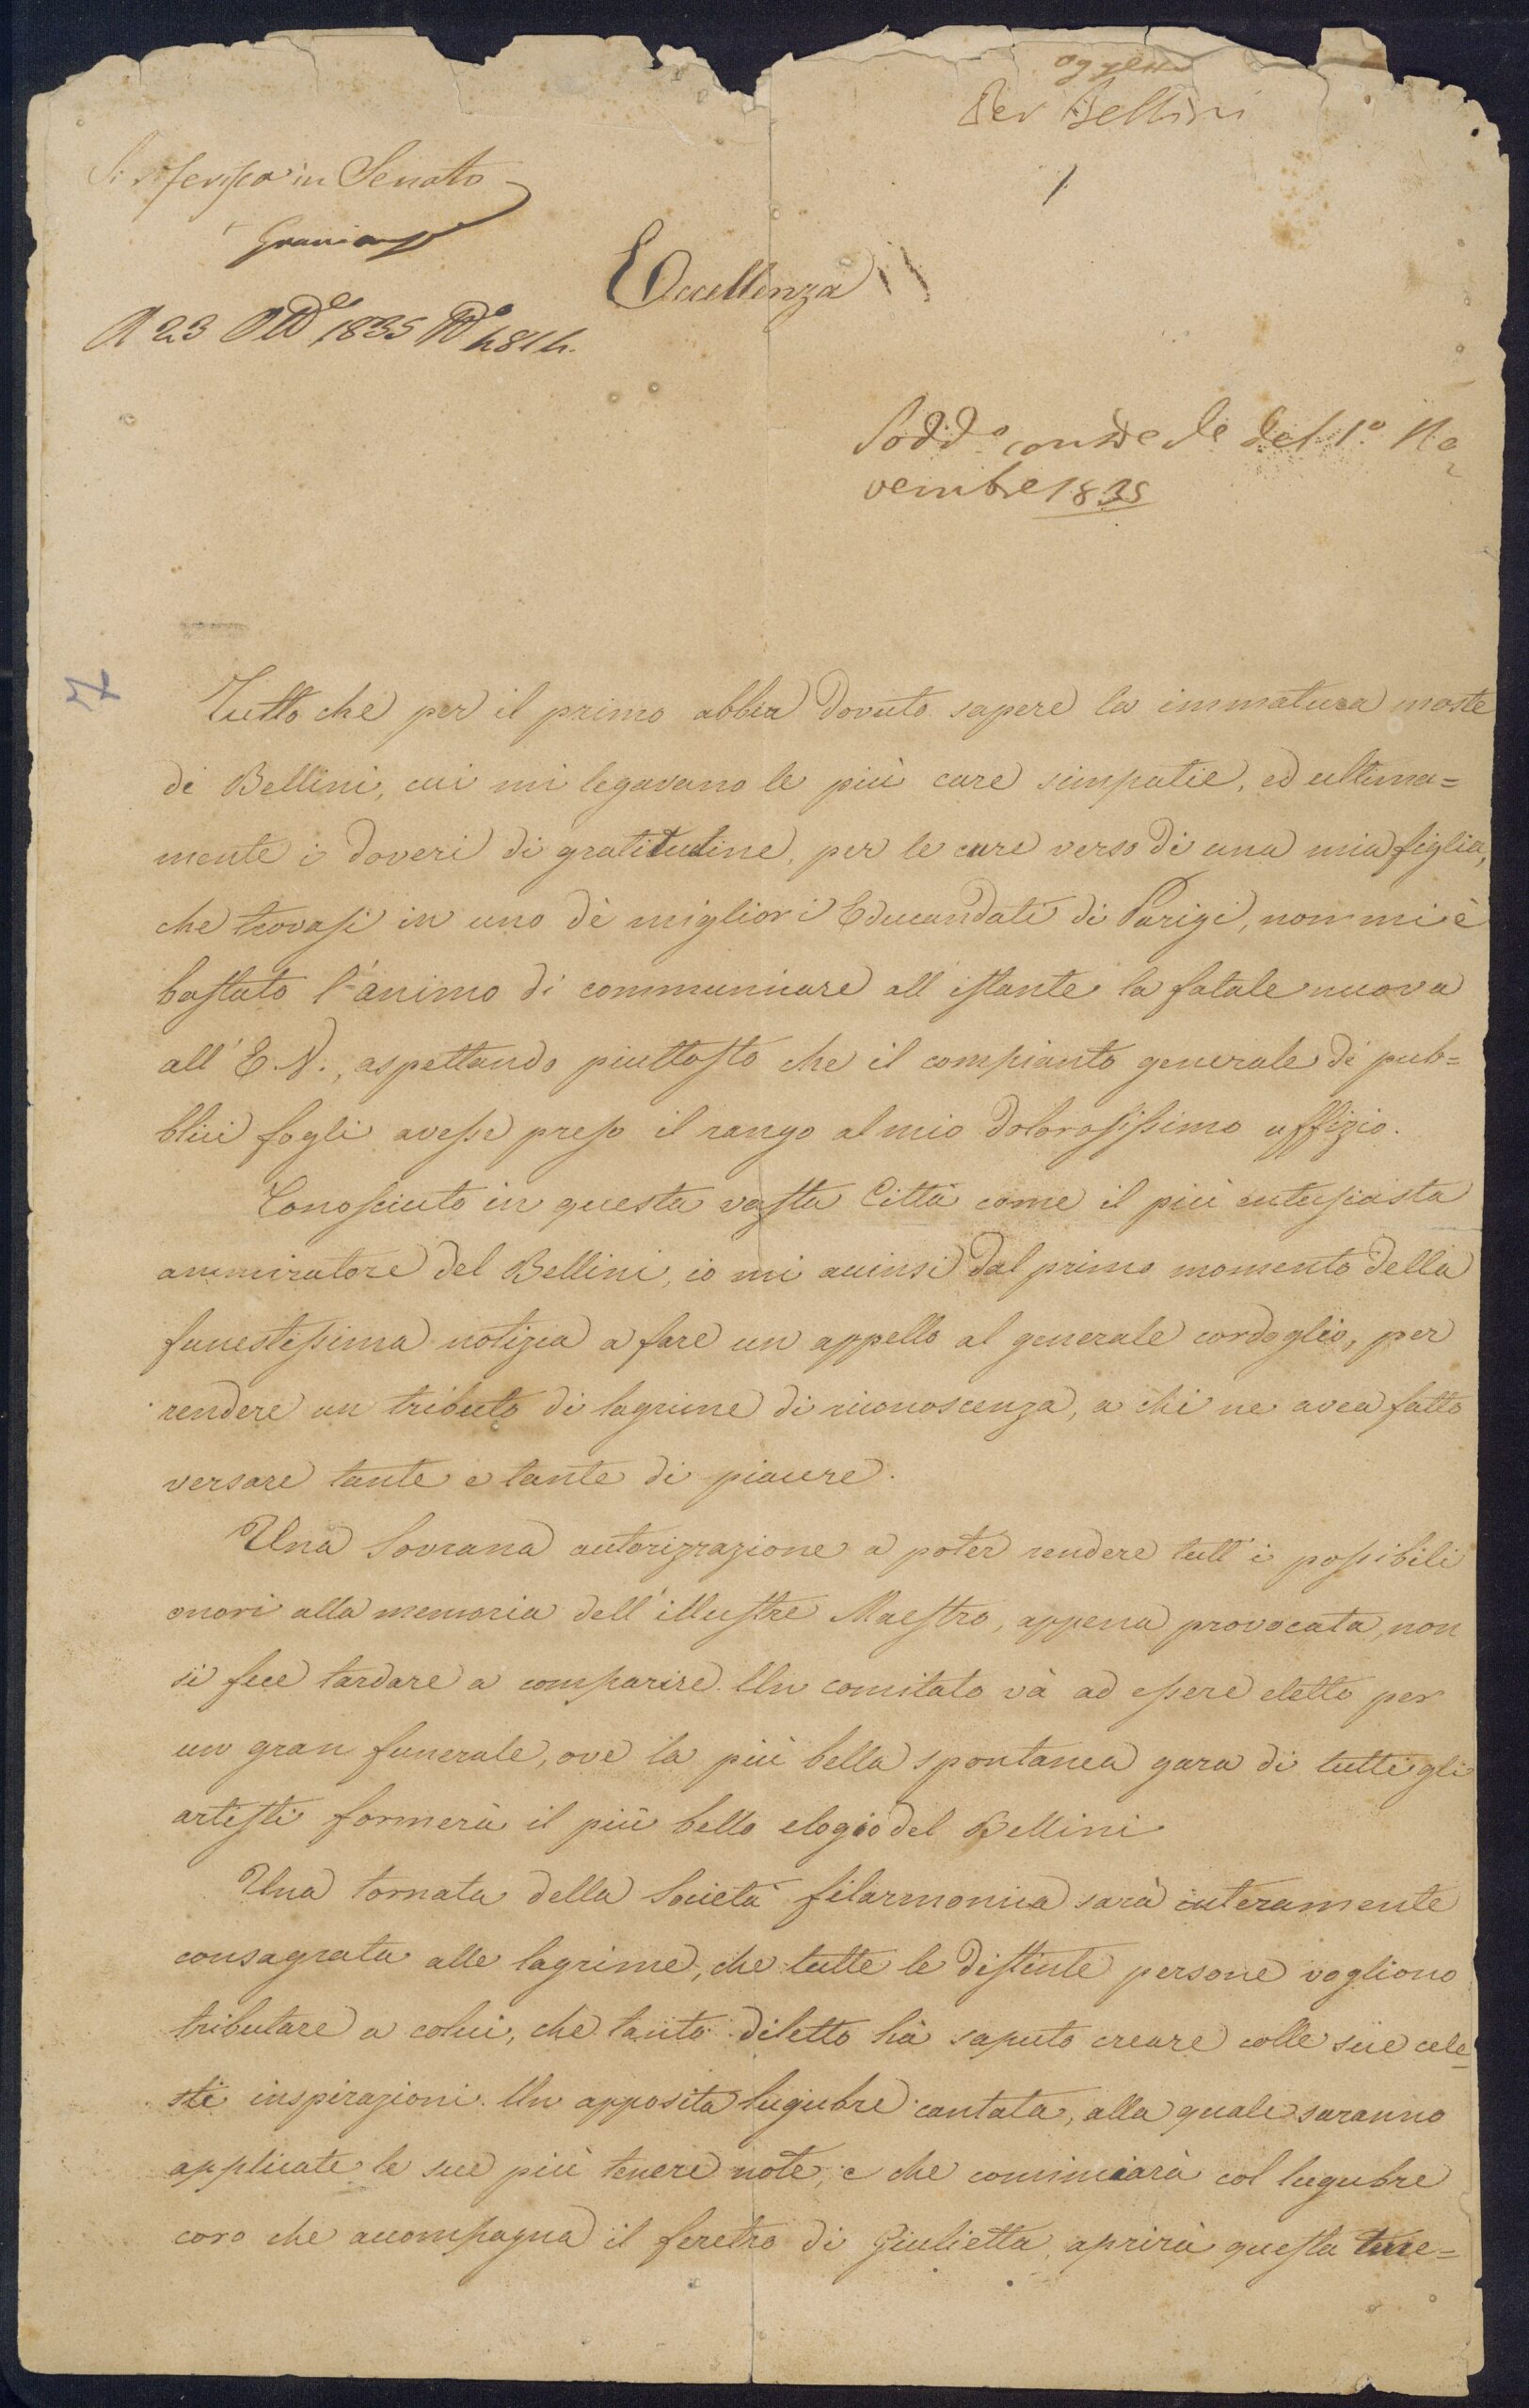 oggetti
Per Bellini
in Senato
A 23 Ott.e 1835 N.o 4814.
Eccellenza
Sodd.o con del 1.o No
vembre 1835
7
Tutto che per il primo abbia dovuto sapere la immatura morte
di Bellini, cui mi legavano le più care simpatie, ed ultima=
mente i doveri di gratitudine, per le cure verso di una mia figlia,
che trovasi in uno dè migliori Educandati di Parigi, non mi è
bastato l'animo di communicare all'istante la fatale nuova
all'E. V., aspettando piuttosto che il compianto generale dè pub=
blici fogli avesse preso il rango al mio dolorosissimo uffizio.
Conosciuto in questa vasta Città come il più entusiasta
ammiratore del Bellini, io mi accinsi dal primo momento della
funestissima notizia a fare un appello al generale cordoglio, per
rendere un tributo di lagrime di riconoscenza, a chi ne avea fatto
versare tante e tante di piacere.
Una Sovrana autorizzazione a poter rendere tutt'i possibili
onori alla memoria dell'illustre Maestro, appena provocata, non
si fece tardare a comparire. Un comitato và ad essere eletto per
un gran funerale, ove la più bella spontanea gara di tutti gli
artisti formerà il più bello elogio del Bellini
Una tornata della Società filarmonica sarà interamente
consagrata alle lagrime, che tutte le distinte persone vogliono
tributare a colui, che tanto diletto hà saputo creare colle sue cele=
sti inspirazioni. Un apposita lugubre cantata, alla quale saranno
applicate le sue più tenere note, e che comincierà col lugubre
coro che accompagna il feretro di Giulietta, aprirà questa